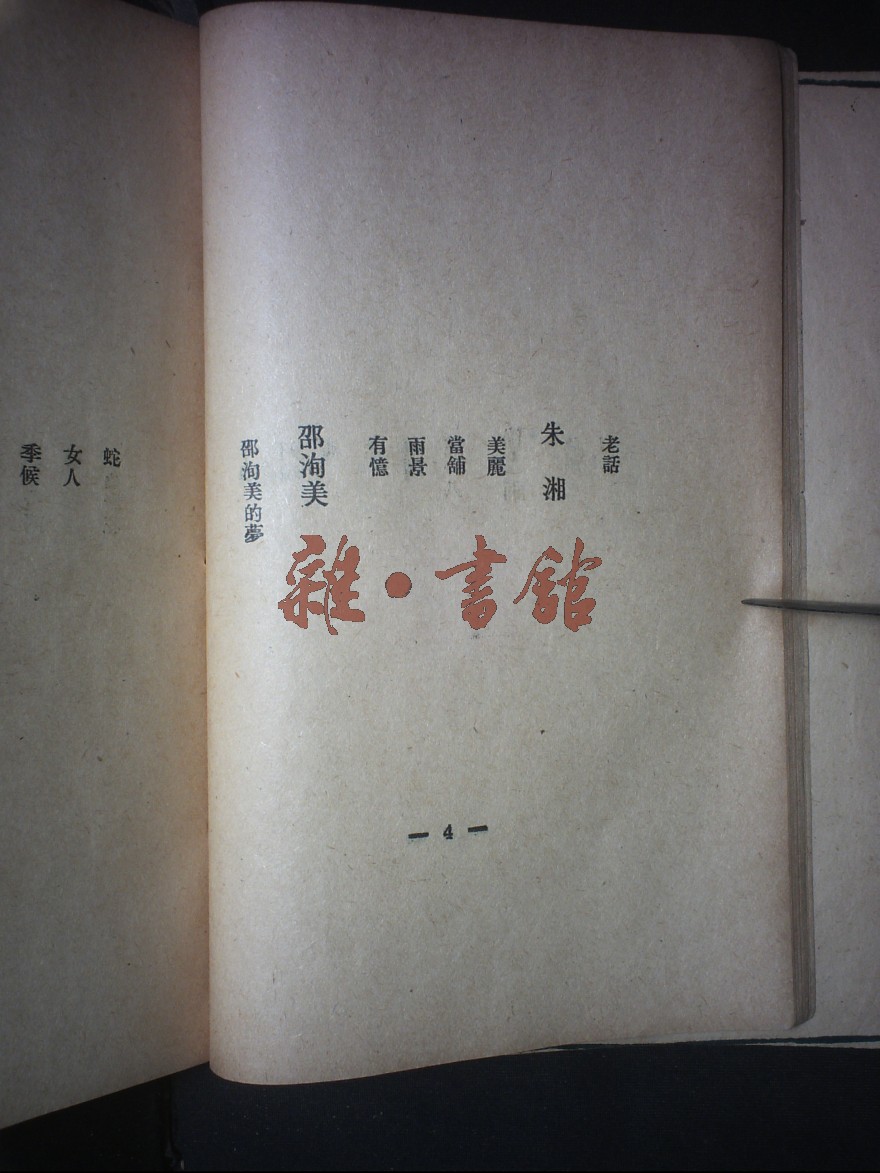 老話
朱湘
美麗
當舖
雨景
有憶
邵洵美
邵洵美的夢
— 4 —
蛇
女人
季候
雜·書館